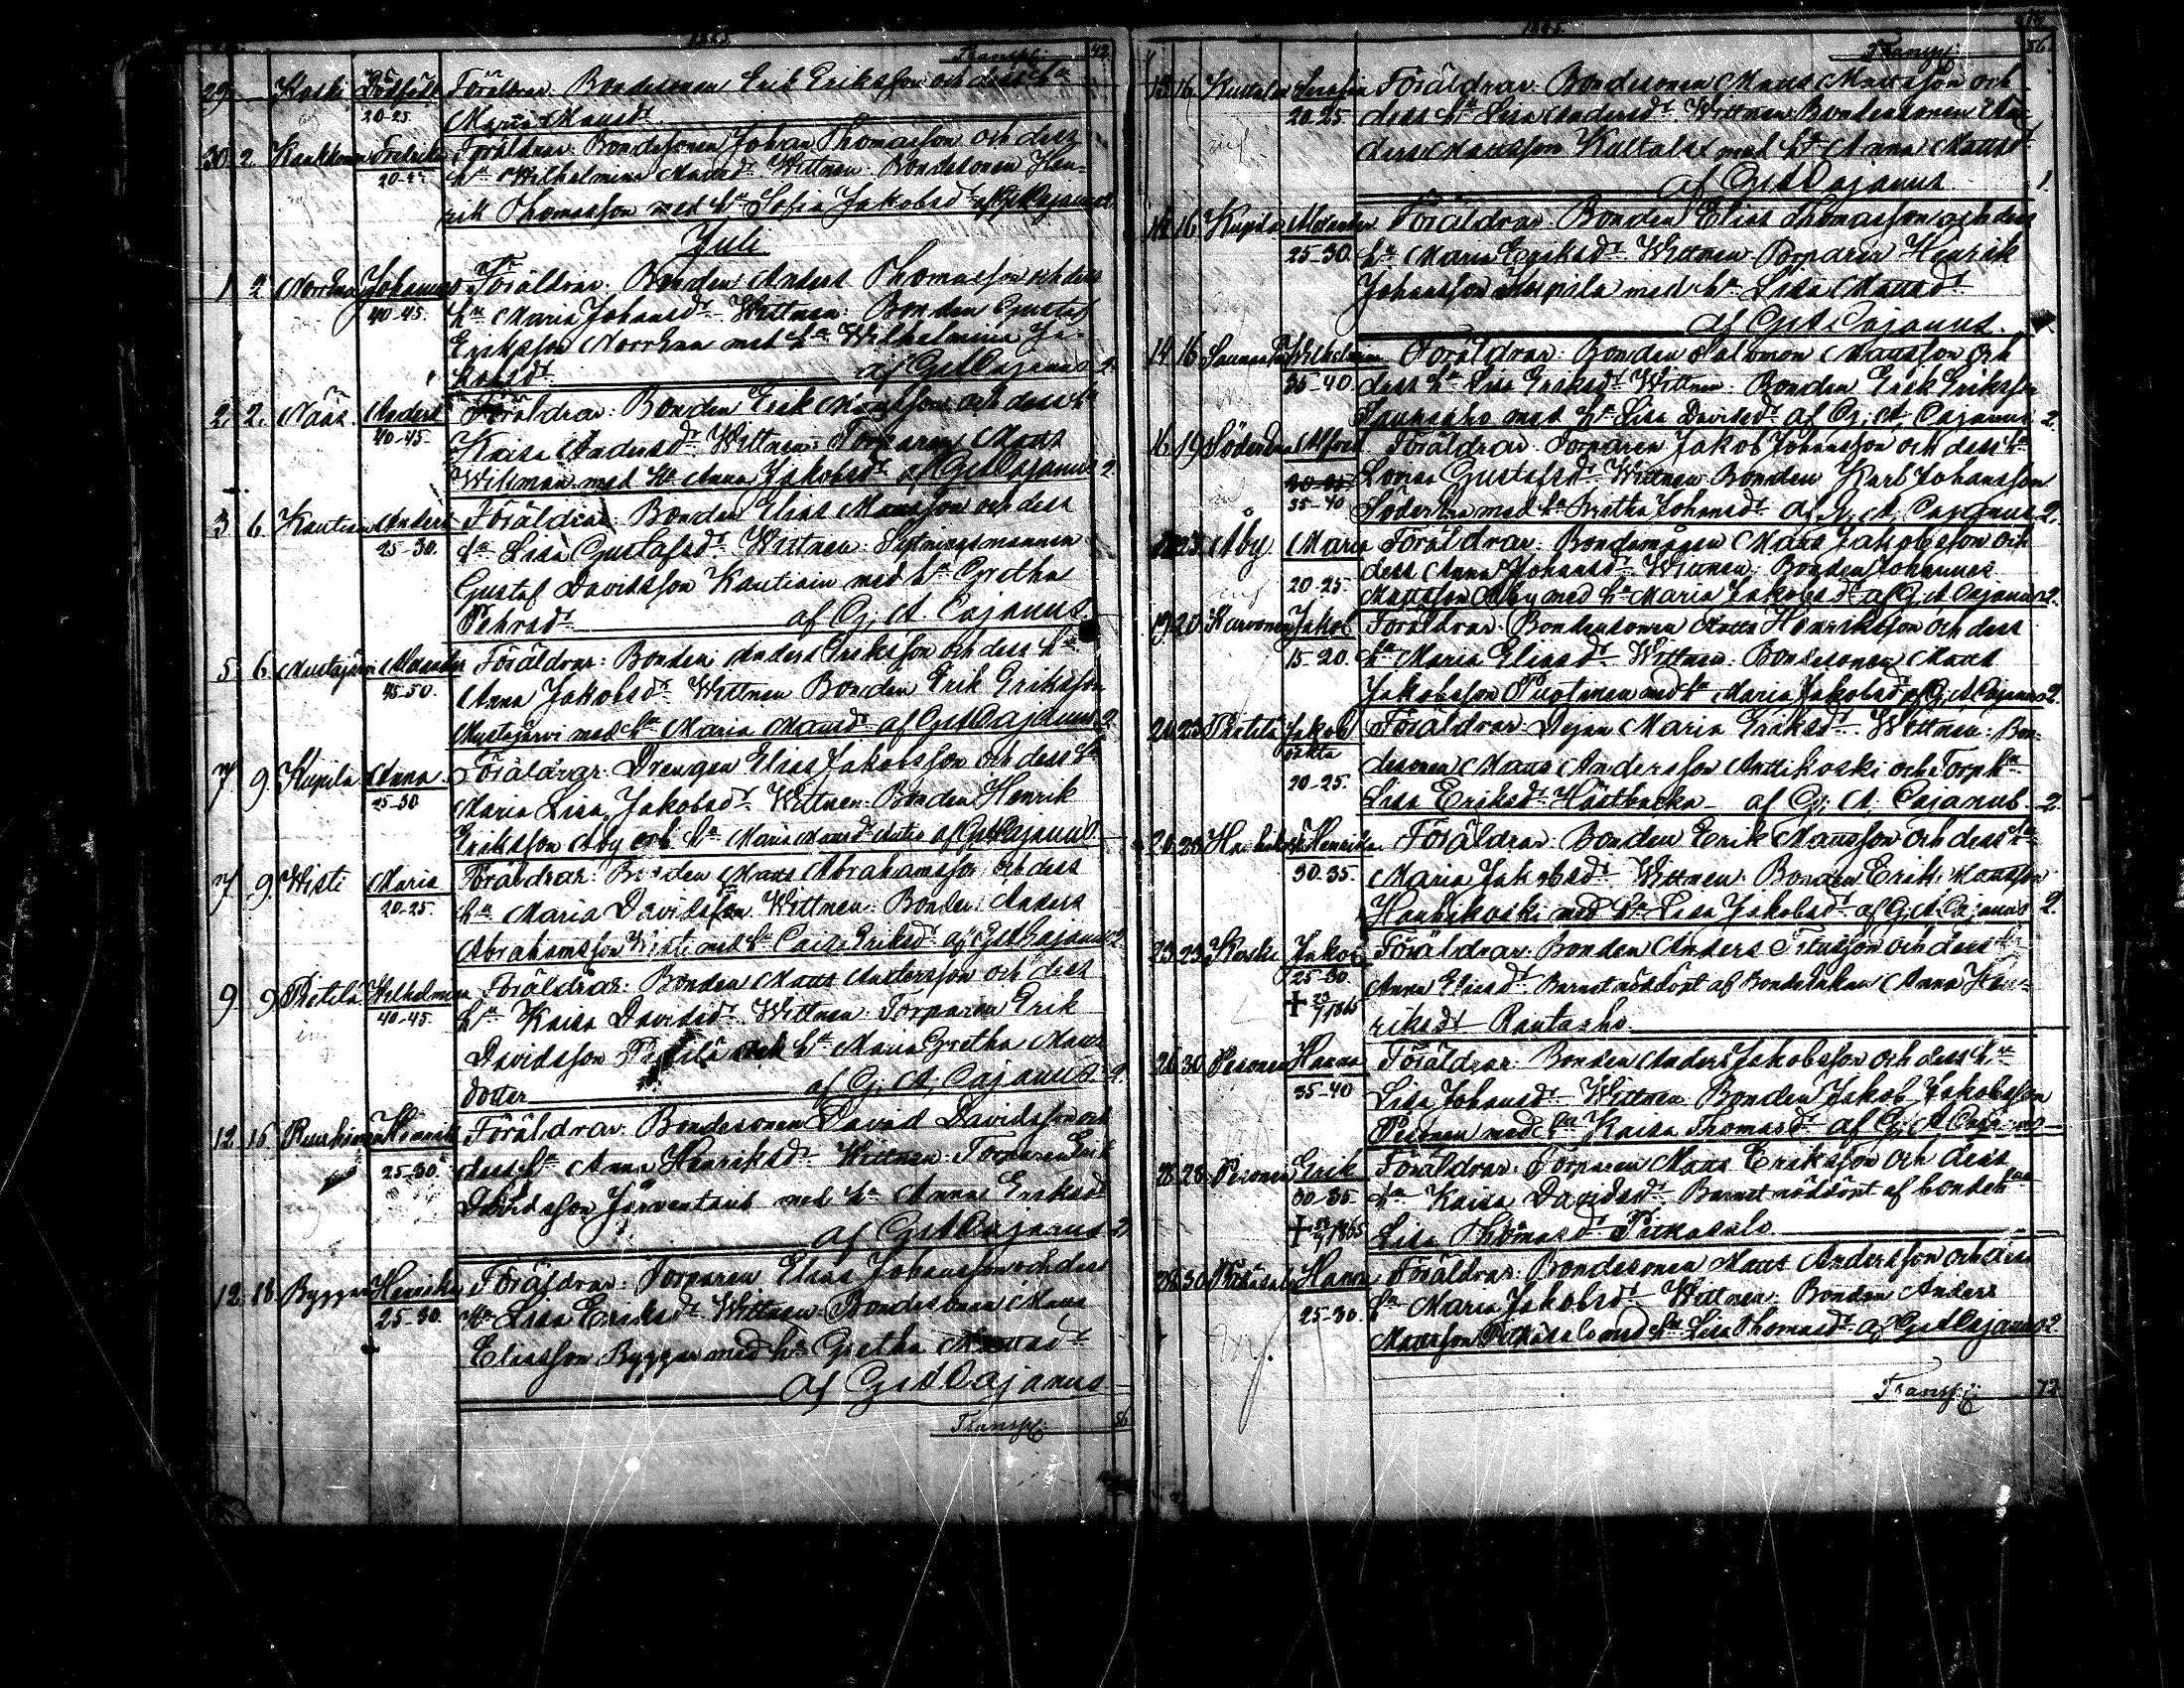 1865.
Transp. 42
29. Koski Dödfödt Föräldrar: Bondesonen Erik Eriksson och dess hu
20-25. Maria Mattsdr
30. 2. Kaukkonen Fredrika Föräldrar: Bondesonen Johan Thomasson och dess
20-25 hu Wilhelmina Mattsdr Wittnen: Bondesonen Hen-
rik Thomasson med hu Sofia Jakobsdr af G. A. Cajanus 2.
Juli
1 2 Norrena Johannes Föräldrar: Bonden Anders Thomasson och dess
40-45. hu Maria Johansdr Wittnen: Bonden Gustaf
Eriksson Norrena med hu Wilhelmina Ja-
kobsdr af G. A. Cajanus 2.
2. 2. Näas Anders Föräldrar: Bonden Erik Mattsson och dess hu
40-45. Kaisa Andersdr Wittnen: Torparen Matts
Wikman med hu Anna Jakobsdr af G. A. Cajanus 2
3 6 Kautiain Anders Föräldrar: Bonden Elias Mattsson och dess
25-30. hu Lisa Gustafsdr Wittnen: Sytningsmannen
Gustaf Davidsson Kautiain med hu Gretha
Pehrsdr af G. A. Cajanus
5 6. Mustajärvi Alexander Föräldrar: Bonden Anders Eriksson och dess hu
45-50. Anna Jakobsdr Wittnen Bonden Erik Eriksson
Mustajärvi med hu Maria Mattsdr af G. A. Cajanus 2
7 9 Kupila Anna Föräldrar: Drengen Elias Jakobsson och dess hu
25-30 Maria Lisa Jakobsdr Wittnen: Bonden Henrik
Eriksson Åby och hu Maria Mattsdr af G. A. Cajanus
7 9. Wisti Maria Föräldrar: Bonden Matts Abrahamsson och dess
20-25. hu Maria Davidsson Wittnen: Bonden Anders
Abrahamsson Wisti med hu Caisa Eriksdr af G. A. Cajanus 2
9 9 Pietilä Wilhelmina Föräldrar: Bonden Matts Andersson och dess
40-45. hu Kaisa Davidsdr Wittnen: Torparen Erik
Davidsson Pietilä och hu Maria Gretha Matts
dotter af G. A. Cajanus 2.
12 16 Henrik Föräldrar: Bondesonen David Davidsson och
25-30. dess hu Anna Henriksdr Wittnen: Torparen Erik
Davidsson Järventaus med hu Anna Eriksdr
af G. A. Cajanus 2
12. 18. Byggar Henrika Föräldrar: Torparen Elias Johansson och dess
25-30. hu Lisa Eriksdr Wittnen: Bondesonen Matts
Eliasson Byggar med hu Gretha Mattsdr
af G. A. Cajanus
Transp. 56
1865.
Transp. 56.
13 16 Kultalax Serafia Föräldrar: Bondesonen Matts Mattsson och
20-25 dess hu Lisa Andersdr Wittnen: Bondesonen An-
ders Mattsson Kultalax med hu Anna Mattsdr
af G. A. Cajanus 1.
14 16 Kupila Alexander Föräldrar: Bonden Elias Thomasson och dess
25-30. hu Maria Eriksdr Wittnen: Torparen Henrik
Johansson Kupila med hu Lisa Mattsdr
af G. A. Cajanus.
14 16 Saunaaho Wilhelmina Föräldrar: Bonden Salomon Mattsson och
35-40 dess hu Lisa Eriksdr Wittnen: Bonden Erik Eriksson
Saunaaho med hu Lisa Davidsdr af G. A. Cajanus 2.
16 19 Söderena Alfred Föräldrar: Torparen Jakob Johansson och dess hu
20-25 Lovisa Gustafsdr Wittnen: Bonden Karl Johansson
35-40 Söderena med hu Bretha Johansdr af G. A. Cajanus 2.
23. Åby Maria Föräldrar: Bondemågen Matts Jakobsson och
20-25. dess Anna Johansdr Wittnen: Bonden Johannes
Mattsson Åby med hu Maria Jakobsdr af G. A. Cajanus 2.
19 20 Karvonen Jakob Föräldrar: Bondesonen Matts Henriksson och dess
15-20. hu Maria Eliasdr Wittnen: Bondesonen Matts
Jakobsson Puotinen med hu Maria Jakobsdr af G. A. Cajanus 2.
20 23 Pietilä Jakob Föräldrar: Dejan Maria Eriksdr Wittnen: Bon-
oäkta desonen Matts Andersson Anttikoski och Torp hu
20-25. Lisa Eriksdr Hästbacka af G. A. Cajanus 2
20 23 Haukikoski Henrika Föräldrar: Bonden Erik Mattsson och dess hu
30-35. Maria Jakobsdr Wittnen: Bonden Erik Mattsson
Haukikoski med hu Lisa Jakobsdr af G. A. Cajanus 2.
23 23 Koski Jakob Föräldrar: Bonden Anders Titusson och dess hu
25-30. Anna Eliasdr Barnet nöddöpt af Bondeenkan Anna Hen-
+ 23/7 1865 riksdr Rautasho
26 30 Pesonen Hanna Föräldrar: Bonden Anders Jakobsson och dess hu
35-40 Lisa Johansdr Wittnen Bonden Jakob Jakobsson
Pesonen med hu Kaisa Thomasdr af G. A. Cajanus
28 28 Pesonen Erik Föräldrar: Torparen Matts Eriksson och dess
30-35. hu Kaisa Davidsdr Barnet nöddöpt af bondeh
+ 28/7 1865 Lisa Thomasdr Pitkäsalo
28 30 Pitkäsalo Hanna Föräldrar: Bondesonen Matts Andersson och dess
25-30. hu Maria Jakobsdr Wittnen: Bonden Anders
Mattsson Pitkäsalo med hu Lisa Thomasdr af G. A. Cajanus 2
Transp. 72